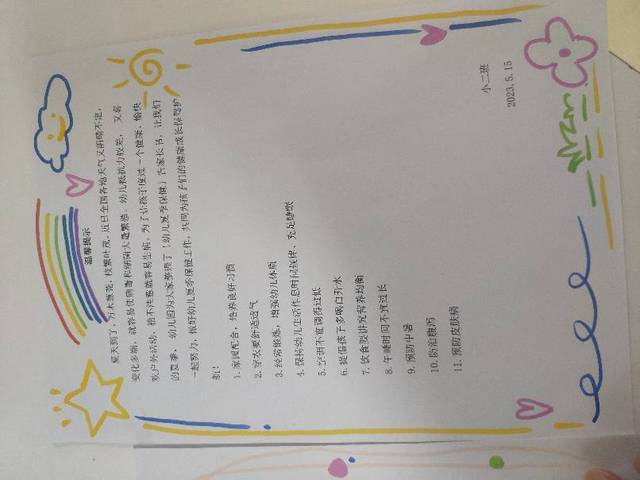 温馨提示
夏天到了，万木葱茏，枝繁叶茂。近日全国各地天气又阴晴不定，
变化多端，就容易使病毒和细菌大量繁殖，幼儿抵抗力较差，又喜
欢户外活动，稍不注意就容易生病。为了让孩子度过一个健康、愉快
的夏季，幼儿园为大家整理了《幼儿夏季保健》告家长书，让我们
一起努力，做好幼儿夏季保健工作，共同为孩子们的健康成长保驾护
航！
1.家园配合，培养良好习惯
2.穿衣要舒适透气
3.经常锻炼，增强幼儿体质
4.保持幼儿生活作息时间规律、充足睡眠
5.空调不宜调得过低
6.提倡孩子多喝白开水
7.饮食要讲究营养均衡
8.午睡时间不宜过长
9.预防中暑
10.防治腹泻
11.预防皮肤病
小二班
2023.5.15